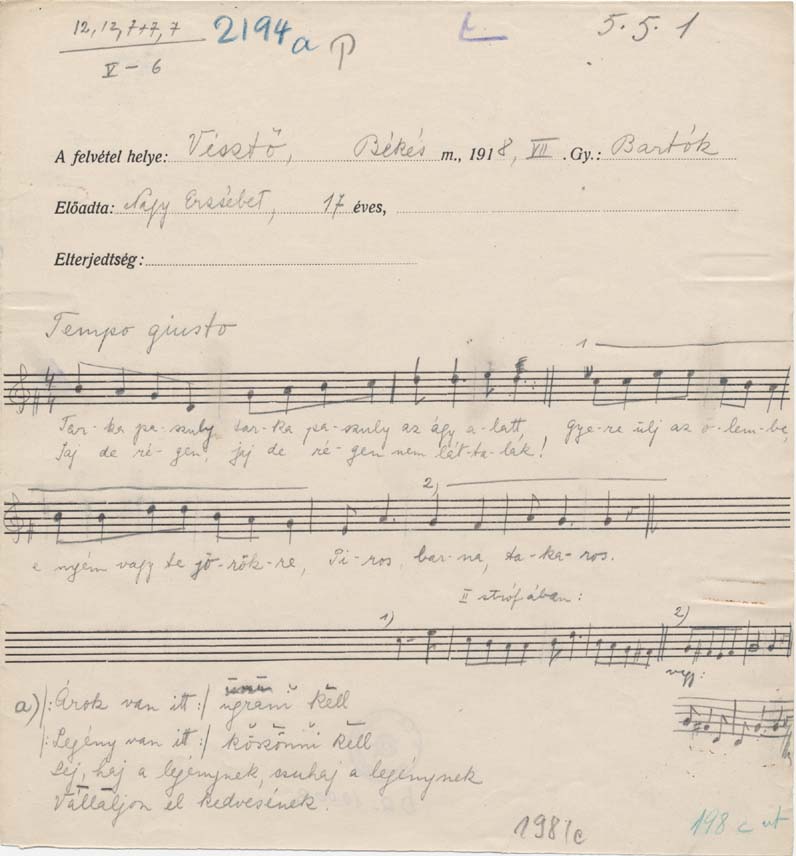 12, 12, 7+7, 7
V – 6
2194 a P
5. 5. 1
A felvétel helye: Vésztő, Békés m., 1918, VII. Gy.: Bartók
Előadta: Nagy Erzsébet, 17 éves,
Elterjedtség:
Tempo giusto
1
4 4
Tar-ka pa-szuly tar-ka pa-szuly az ágy a-latt, Gye-re ülj az ö-lem-be,
Jaj de ré-gen, jaj de ré-gen nem lát-ta-lák!
2)
e nyém vagy te jö-rök-re, Pi-ros, bar-na, ta-ka-ros.
II strófában:
1) 2)
vagy:
a) |: Árok van itt :| ugrani kell
|: Legény van itt :| köszönni kell
Sej, haj a legénynek, szuhaj a legénynek
Vállaljon el kedvesének.
1981c
198 c